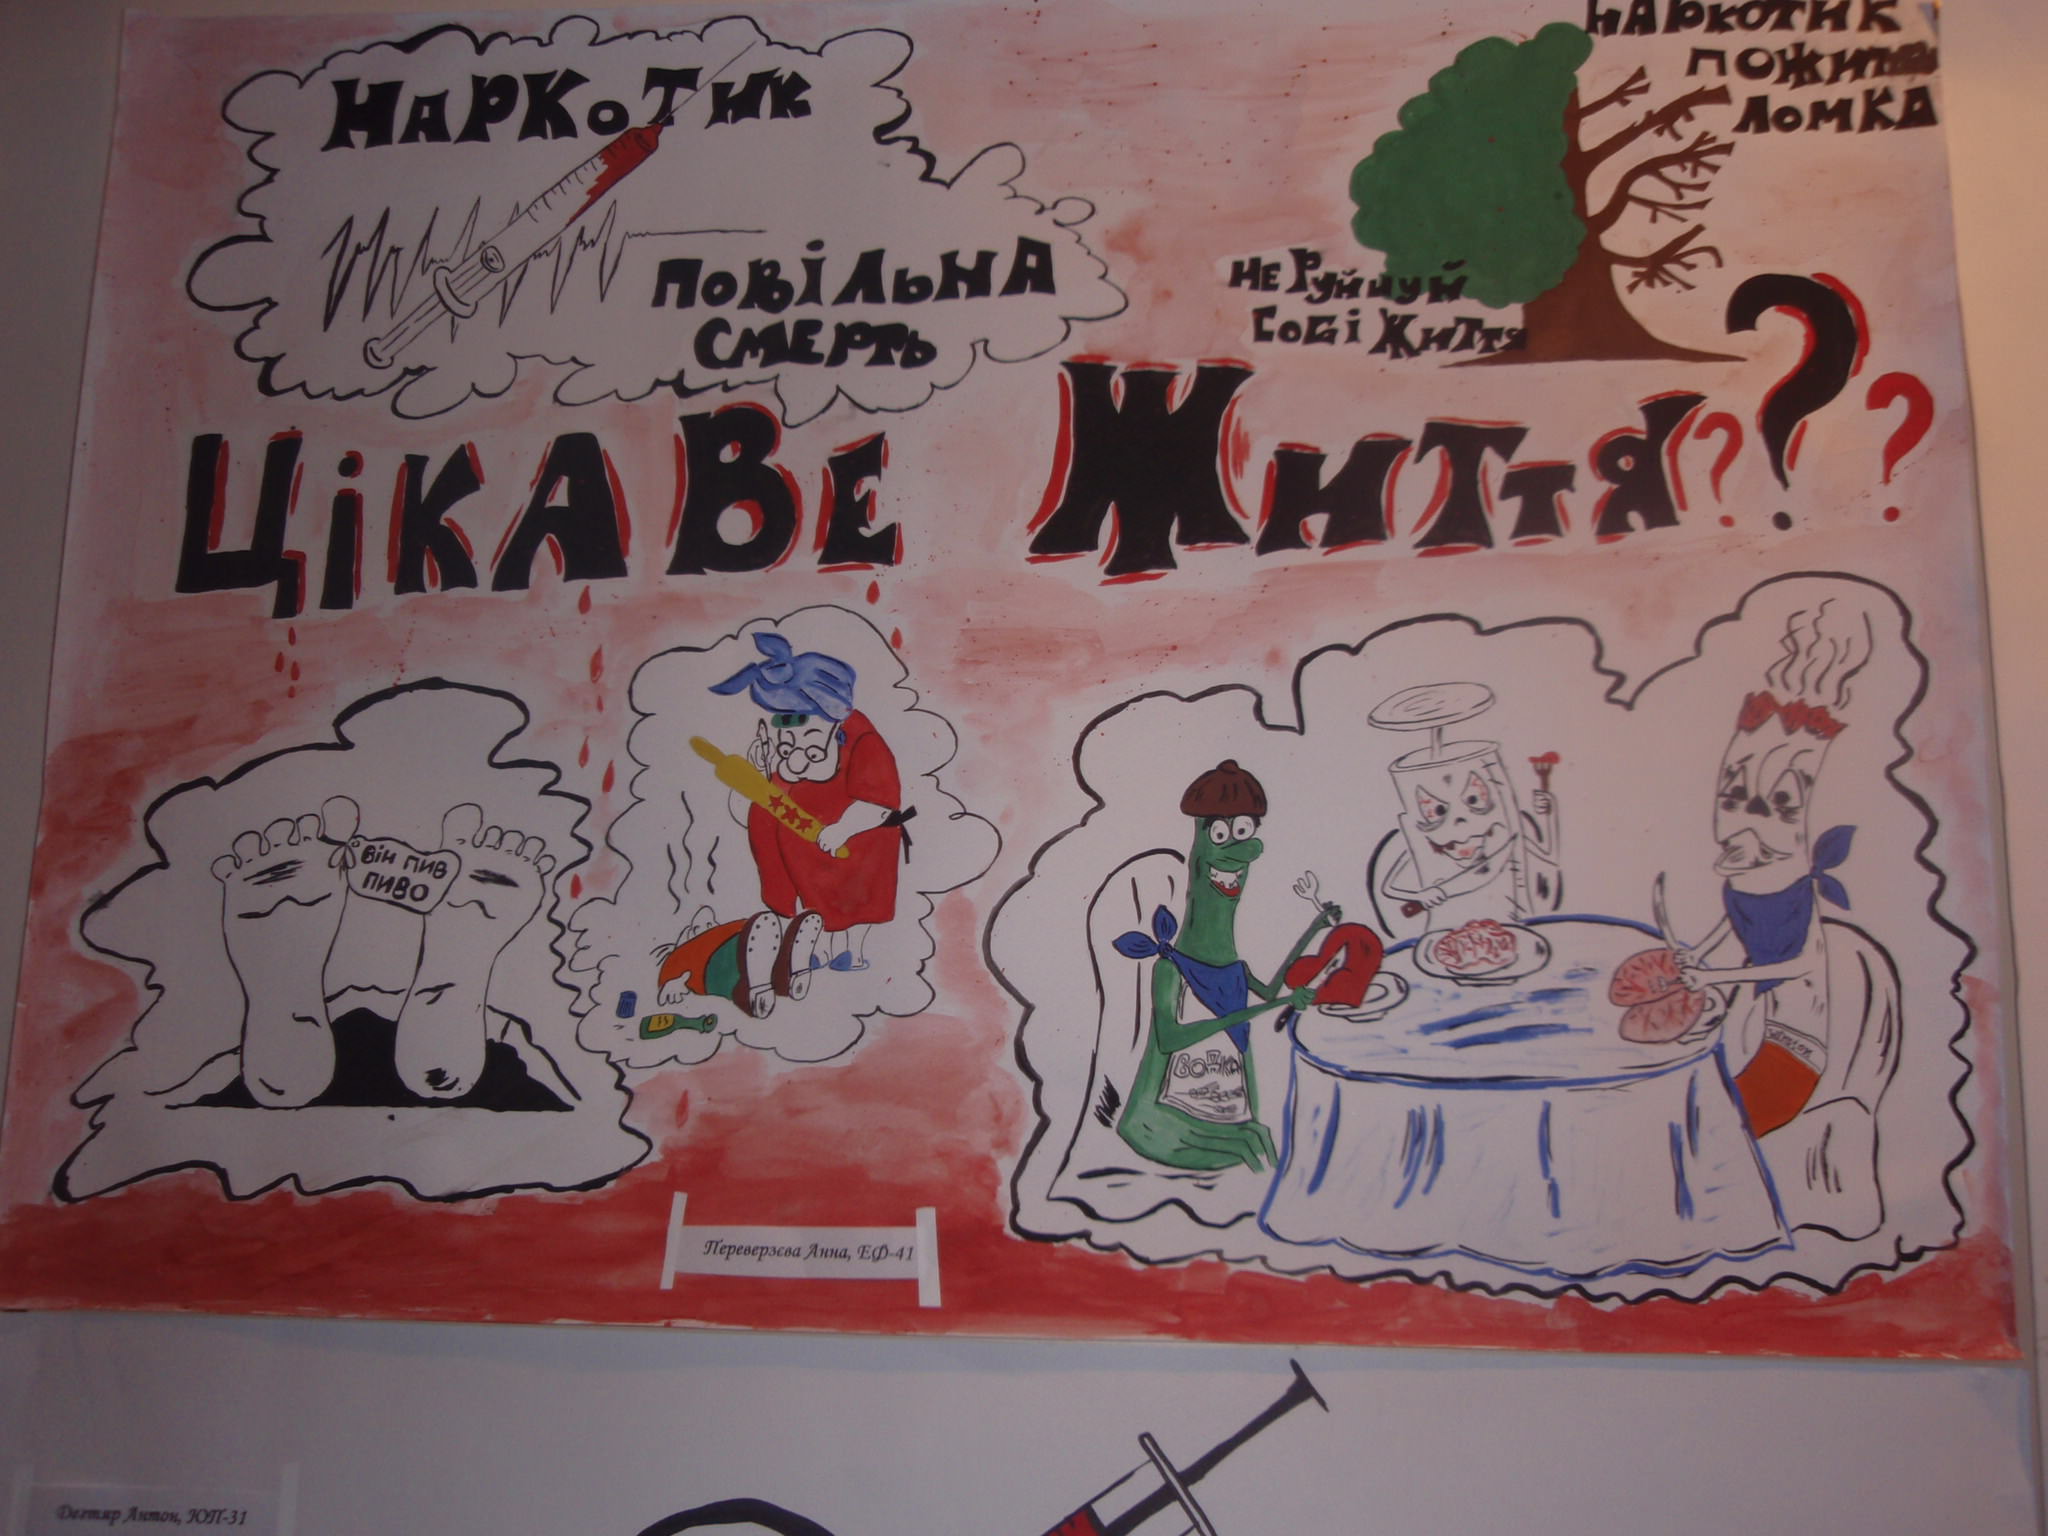 Наркотик
повільна
смерть
наркотик
ломка
Не Руйнуй
Собі Життя
ЦікАВЕ Життя???
він пив
пиво
водка
Переверзєва Анна, ЕФ-41
Дегтяр Антон, ЮП-31